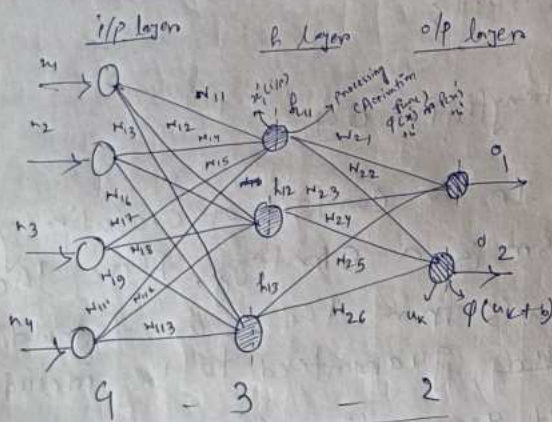 i/p layer h layer o/p layer
x1
x2
x3
x4
W11
W12
W13
W14
W15
W16
W17
W18
W19
W111
W113
x'i (i/p)
h11
processing
(Activation
func)
h12
h13
W21
W22
W23
W24
W25
W26
O1
O2
uk
φ(uk+b)
4 - 3 - 2